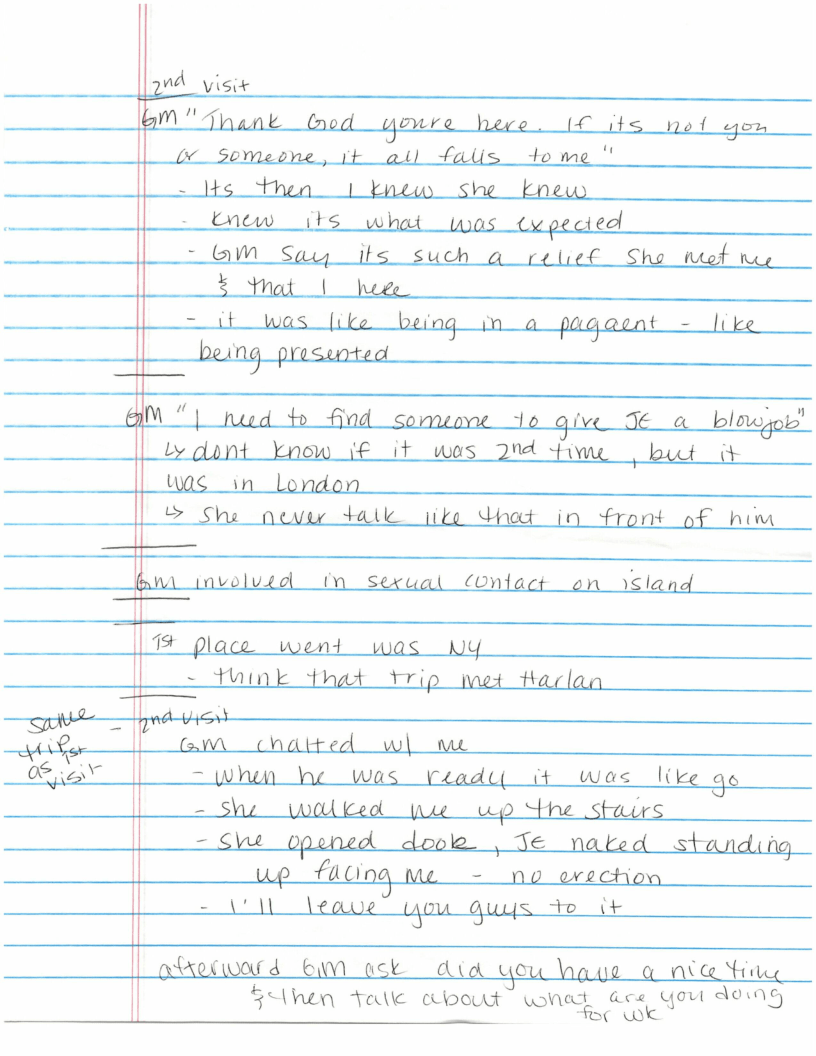 2nd visit
GM "Thank God youre here. If its not you
or someone, it all falls to me"
- Its then I knew she knew
- knew its what was expected
- GM say its such a relief she met me
& that I here
- it was like being in a pagaent - like
being presented
GM "I need to find someone to give JE a blowjob"
↳ dont know if it was 2nd time, but it
was in London
↳ she never talk like that in front of him
GM involved in sexual contact on island
1st place went was NY
- think that trip met Harlan
same trip as 1st visit - 2nd visit
GM chatted w/ me
- when he was ready it was like go
- she walked me up the stairs
- she opened door, JE naked standing
up facing me - no erection
- I'll leave you guys to it
afterward GM ask did you have a nice time
& then talk about what are you doing
for wk